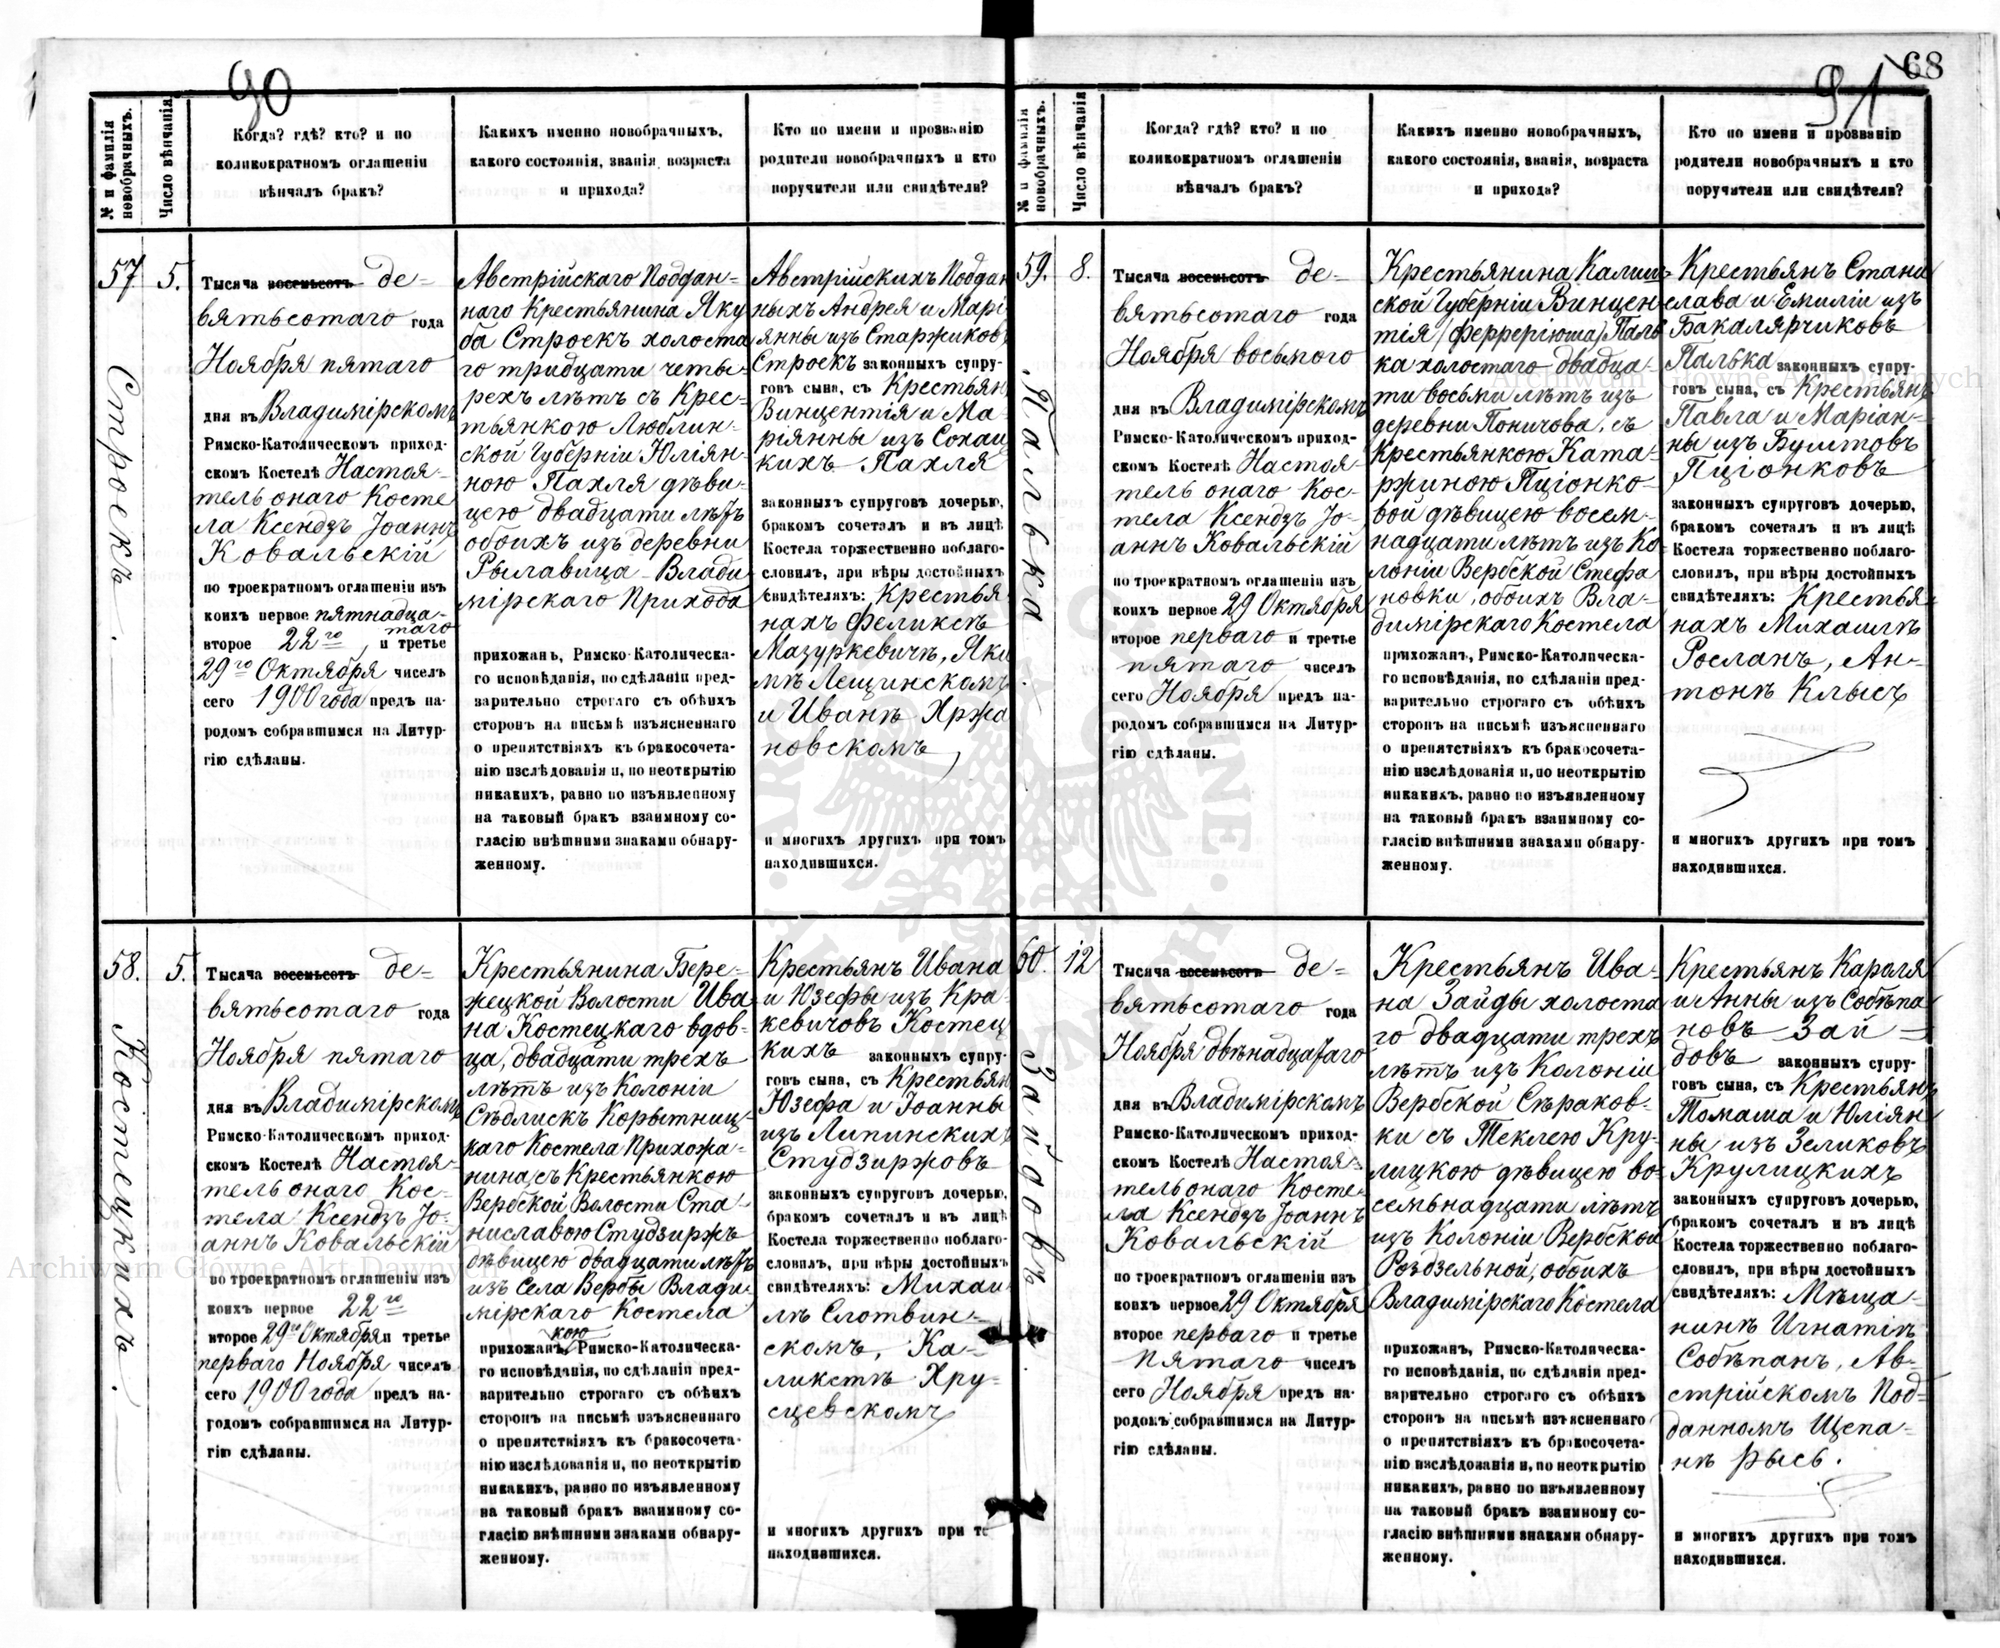 90
№ и фамилія новобрачныхъ.
Число вѣнчанія
Когда? гдѣ? кто? и по
коликократномъ оглашеніи
вѣнчалъ бракъ?
Какихъ именно новобрачныхъ,
какого состоянія, званія, возраста
и прихода?
Кто по имени и прозванію
родители новобрачныхъ и кто
поручители или свидѣтели?
57
Строекъ.
5.
Тысяча восемьсотъ де=
вятьсотаго года
Ноября пятаго
дня въ Владимірскомъ
Римско-Католическомъ приход-
скомъ Костелѣ Настоя-
тель онаго Косте
ла Ксендзъ Іоаннъ
Ковальскій
по троекратномъ оглашеніи изъ
коихъ первое пятнадца-
таго
второе 22го, и третье
29го Октября чиселъ
сего 1900 года предъ на-
родомъ собравшимся на Литур-
гію сдѣланы.
Австрійскаго Поддан=
наго Крестьянина Яку
ба Строекъ холоста
го тридцати четы-
рехъ лѣтъ съ Крес-
тьянкою Люблин-
ской Губерніи Юліян-
ною Пахля дѣви-
цею двадцати лѣтъ
обоихъ изъ деревни
Рылавица Влади
мірскаго Прихода
прихожанъ, Римско-Католическа-
го исповѣданія, по сдѣланіи пред-
варительно строгаго съ обѣихъ
сторонъ на письмѣ изъясненнаго
о препятствіяхъ къ бракосочета-
нію изслѣдованія и, по неоткрытію
никакихъ, равно по изъявленному
на таковый бракъ взаимному со-
гласію внѣшними знаками обнару-
женному.
Австрійскихъ Поддан
ныхъ Андрея и Марі
янны изъ Старжиковъ
Строекъ законныхъ супру-
говъ сына, съ Крестьян
Винцентія и Ма-
ріянны изъ Сохац
кихъ Пахля
законныхъ супруговъ дочерью,
бракомъ сочеталъ и въ лицѣ
Костела торжественно поблаго-
словилъ, при вѣры достойныхъ
свидѣтеляхъ: Крестья
нахъ Феликсѣ
Мазуркевичѣ, Яки
мѣ Лещинскомъ
и Иванѣ Хржа
новскомъ
и многихъ другихъ при томъ
находившихся.
58.
Костецкихъ.
5.
Тысяча восемьсотъ де=
вятьсотаго года
Ноября пятаго
дня въ Владимірскомъ
Римско-Католическомъ приход-
скомъ Костелѣ Настоя-
тель онаго Кос-
тела Ксендзъ Іо-
аннъ Ковальскій
по троекратномъ оглашеніи изъ
коихъ первое 22го
второе 29го Октября и третье
перваго Ноября чиселъ
сего 1900 года предъ на-
родомъ собравшимся на Литур-
гію сдѣланы.
Крестьянина Бере-
жецкой Волости Ива
на Костецкаго вдов-
ца, двадцати трехъ
лѣтъ изъ Колоніи
Сѣдлискъ Корытниц-
каго Костела Прихожа-
нина, съ Крестьянкою
Вербской Волости Ста-
ниславою Студзиржъ
дѣвицею двадцати лѣтъ
изъ Села Вербы Влади-
мірскаго Костела
кою
прихожанъ, Римско-Католическа-
го исповѣданія, по сдѣланіи пред-
варительно строгаго съ обѣихъ
сторонъ на письмѣ изъясненнаго
о препятствіяхъ къ бракосочета-
нію изслѣдованія и, по неоткрытію
никакихъ, равно по изъявленному
на таковый бракъ взаимному со-
гласію внѣшними знаками обнару-
женному.
Крестьянъ Ивана
и Юзефы изъ Кра-
кевичовъ Костец
кихъ законныхъ супру-
говъ сына, съ Крестьян
Юзефа и Іоанны
изъ Липинскихъ
Студзиржовъ
законныхъ супруговъ дочерью,
бракомъ сочеталъ и въ лицѣ
Костела торжественно поблаго-
словилъ, при вѣры достойныхъ
свидѣтеляхъ: Михаи
лѣ Слотвин-
скомъ, Ка-
ликстѣ Хру-
сцевскомъ
и многихъ другихъ при то
находившихся.
68
91
№ и фамилія новобрачныхъ.
Число вѣнчанія
Когда? гдѣ? кто? и по
коликократномъ оглашеніи
вѣнчалъ бракъ?
Какихъ именно новобрачныхъ,
какого состоянія, званія, возраста
и прихода?
Кто по имени и прозванію
родители новобрачныхъ и кто
поручители или свидѣтели?
59.
Палька.
8.
Тысяча восемьсотъ де=
вятьсотаго года
Ноября восьмого
дня въ Владимірскомъ
Римско-Католическомъ приход-
скомъ Костелѣ Настоя-
тель онаго Кос-
тела Ксендзъ Іо-
аннъ Ковальскій
по троекратномъ оглашеніи изъ
коихъ первое 29 Октября
второе перваго и третье
пятаго чиселъ
сего Ноября предъ на-
родомъ собравшимся на Литур-
гію сдѣланы.
Крестьянина Калиш-
ской Губерніи Винцен
тія (Феррерiюша) Паль
ка холостаго двадца-
ти восьми лѣтъ изъ
деревни Поничова, съ
Крестьянкою Ката-
ржиною Пціонко-
вой дѣвицею восем-
надцати лѣтъ изъ Ко
лоніи Вербской Стефа
новки, обоихъ Вла-
димірскаго Костела
прихожанъ, Римско-Католическа-
го исповѣданія, по сдѣланіи пред-
варительно строгаго съ обѣихъ
сторонъ на письмѣ изъясненнаго
о препятствіяхъ къ бракосочета-
нію изслѣдованія и, по неоткрытію
никакихъ, равно по изъявленному
на таковый бракъ взаимному со-
гласію внѣшними знаками обнару-
женному.
Крестьянъ Стани
слава и Емиліи изъ
Бакалярчиковъ
Палька законныхъ супру-
говъ сына, съ Крестьянъ
Павла и Маріан-
ны изъ Бултовъ
Пціонковъ
законныхъ супруговъ дочерью,
бракомъ сочеталъ и въ лицѣ
Костела торжественно поблаго-
словилъ, при вѣры достойныхъ
свидѣтеляхъ: Крестья-
нахъ Михаилѣ
Росланъ, Ан-
тонѣ Клысъ
и многихъ другихъ при томъ
находившихся.
60.
Зайдовъ
12
Тысяча восемьсотъ де=
вятьсотаго года
Ноября двѣнадцатаго
дня въ Владимірскомъ
Римско-Католическомъ приход-
скомъ Костелѣ Настоя-
тель онаго Косте-
ла Ксендзъ Іоаннъ
Ковальскій
по троекратномъ оглашеніи изъ
коихъ первое 29 Октября
второе перваго и третье
пятаго чиселъ
сего Ноября предъ на-
родомъ собравшимся на Литур-
гію сдѣланы.
Крестьянъ Ива-
на Зайды холоста
го двадцати трехъ
лѣтъ изъ Колоніи
Вербской Сѣраков-
ки съ Теклею Кру-
лицкою дѣвицею во-
семьнадцати лѣтъ
изъ Колоніи Вербской
Роздзельной, обоихъ
Владимірскаго Костела
прихожанъ, Римско-Католическа-
го исповѣданія, по сдѣланіи пред-
варительно строгаго съ обѣихъ
сторонъ на письмѣ изъясненнаго
о препятствіяхъ къ бракосочета-
нію изслѣдованія и, по неоткрытію
никакихъ, равно по изъявленному
на таковый бракъ взаимному со-
гласію внѣшними знаками обнару-
женному.
Крестьянъ Кароля
и Анны изъ Собѣпа
новъ Зай=
довъ законныхъ супру-
говъ сына, съ Крестьянъ
Томаша и Юліян
ны изъ Зеликовъ
Крулицкихъ
законныхъ супруговъ дочерью,
бракомъ сочеталъ и въ лицѣ
Костела торжественно поблаго-
словилъ, при вѣры достойныхъ
свидѣтеляхъ: Мѣща-
нинѣ Игнатіѣ
Собѣпанъ, Ав-
стрійскомъ Под-
данномъ Щепа-
нѣ Рысь.
и многихъ другихъ при томъ
находившихся.
Archiwum Główne Akt Dawnych
Archiwum Główne Akt Dawnych
ARCHIWUM GŁÓWNE AKT DAWNYCH